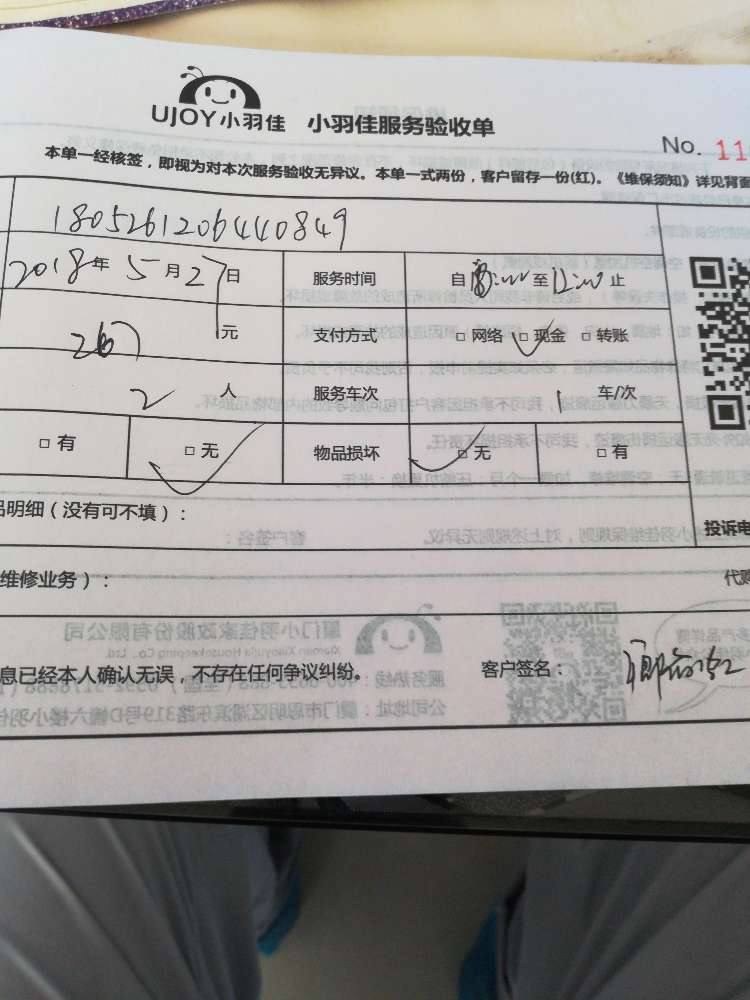 UJOY小羽佳 小羽佳服务验收单
No. 11
本单一经核签，即视为对本次服务验收无异议。本单一式两份，客户留存一份(红)。《维保须知》详见背面
1805261206440849
2018年5月27日 服务时间 自8:00至12:00止
267元 支付方式 □网络 □现金 □转账
2人 服务车次 1车/次
□有 □无 物品损坏 □无 □有
明细（没有可不填）：
投诉电
维修业务）： 代购
息已经本人确认无误，不存在任何争议纠纷。 客户签名：